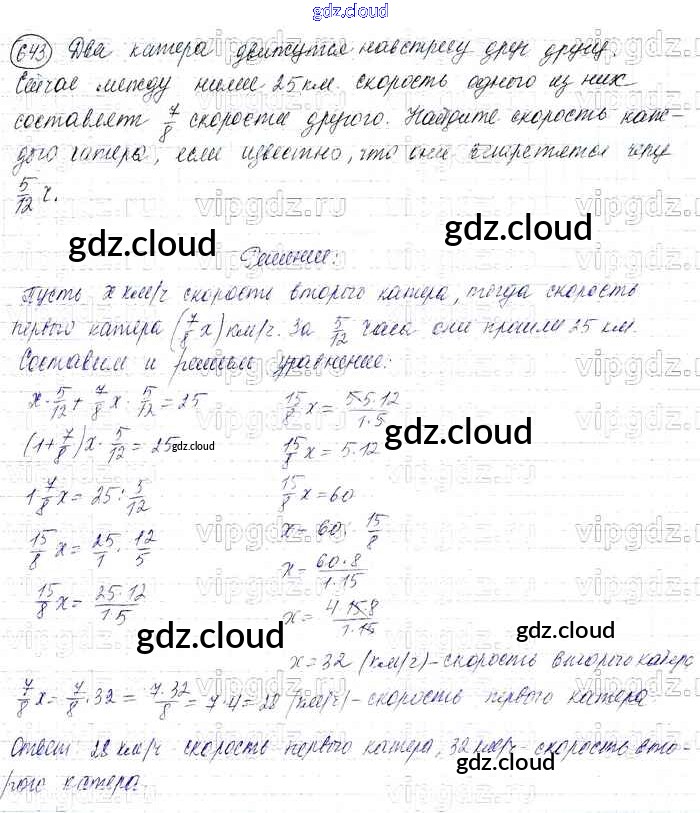 gdz.cloud
643 Два катера движутся навстречу друг другу.
Сейчас между ними 25 км. скорость одного из них
составляет 7/8 скорости другого. Найдите скорость каж-
дого катера, если известно, что они встретятся через
5/12 ч.
gdz.cloud gdz.cloud
Решение:
Пусть x км/ч скорость второго катера, тогда скорость
первого катера (7/8 x) км/ч. За 5/12 часа они прошли 25 км.
Составим и решим уравнение:
x · 5/12 + 7/8 x · 5/12 = 25
(1 + 7/8) x · 5/12 = 25
gdz.cloud
1 7/8 x = 25 : 5/12
15/8 x = 25/1 · 12/5
15/8 x = 25·12/1·5
15/8 x = 5·5·12/1·5
gdz.cloud
15/8 x = 5·12
15/8 x = 60
x = 60 : 15/8
x = 60·8/1·15
gdz.cloud
x = 4·15·8/1·15
gdz.cloud
gdz.cloud
x = 32 (км/ч) - скорость второго катера
7/8 x = 7/8 · 32 = 7·32/8 = 7·4 = 28 (км/ч) - скорость первого катера
Ответ: 28 км/ч - скорость первого катера, 32 км/ч - скорость вто-
рого катера.
gdz.cloud
vipgdz.ru